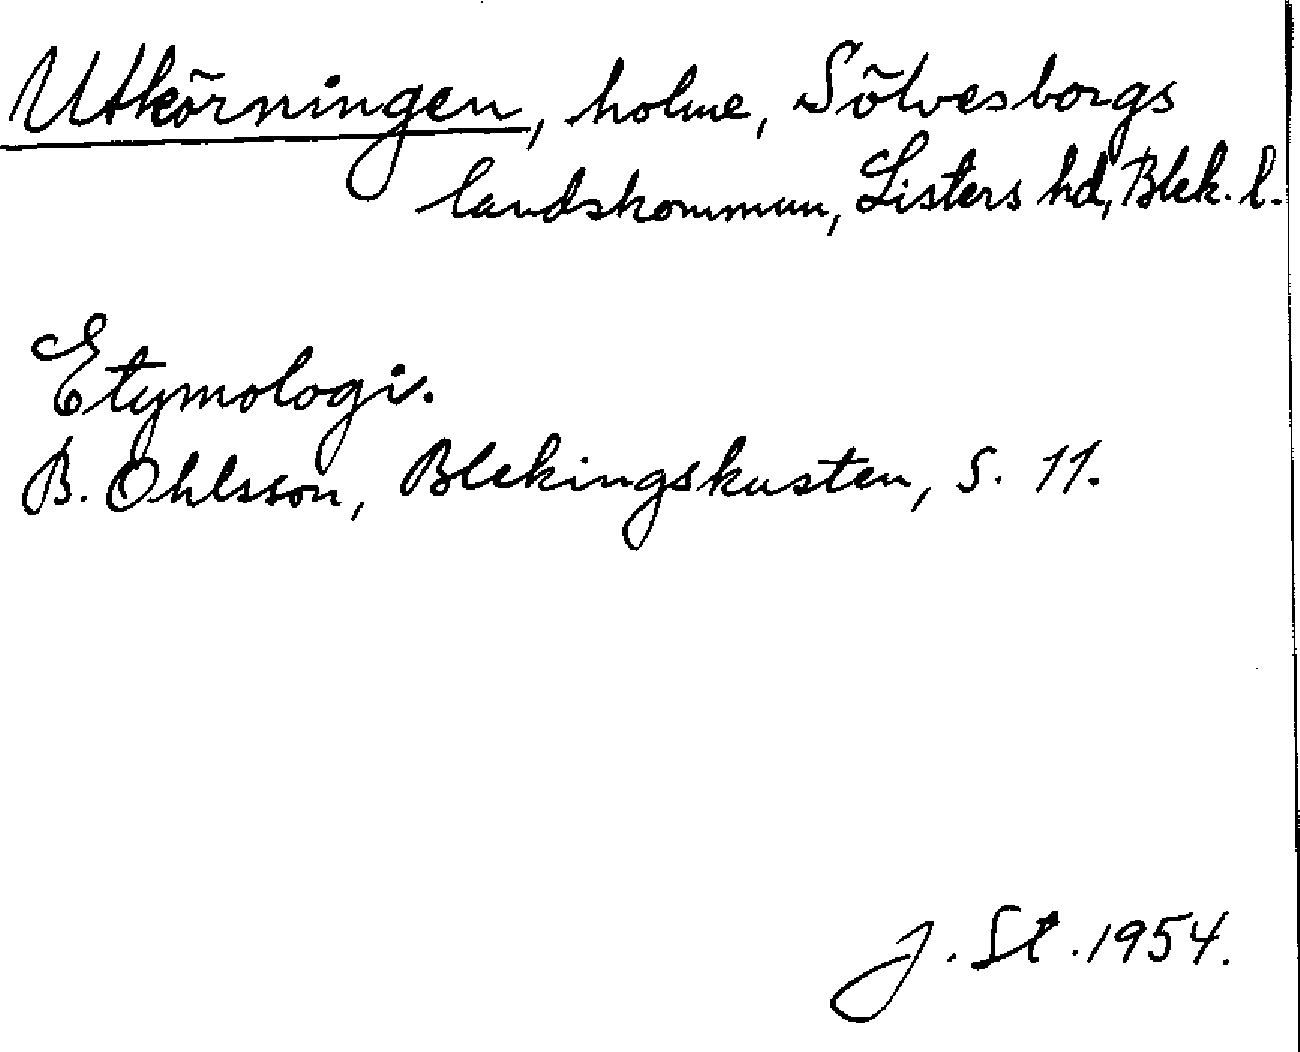 Utkörningen, holme, Sölvesborgs
landskommun, Listers hd, Blek. l.
Etymologi.
B. Ohlsson, Blekingskusten, s. 11.
J. St. 1954.